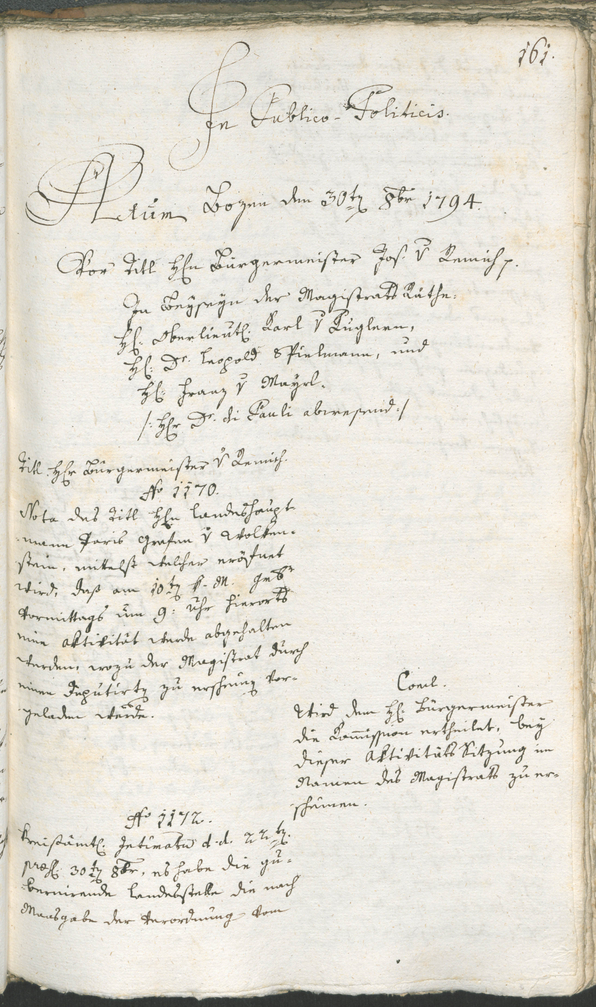 161.
In Publico-Politicis.
Actum Bozen den 30ten 8br 1794.
Vor Titl Hhn Bürgermeister Jos. v Remich p.
In Beyseyn der Magistrats Räthe:
H: Oberlieut: Karl v Kuglern,
H: Dr. Leopold Spielmann, und
H: Franz v Mayrl.
/: Hhr Dr. di Pauli abwesend :/
Titl. Hhr Bürgermeister v Remich.
No 1170.
Nota des Titl Hhn Landeshaupt-
mann Paris Grafen v Wolken-
stein, mittelst welcher eröfnet
wird, daß am 10ten k. M. 9br
Vormittags um 9: Uhr hierorts
eine Aktivität werde abgehalten
werden, wozu der Magistrat durch
einen Deputirten zu erscheinen vor-
geladen werde.
Concl.
Wird dem H: Bürgermeister
die Commission ertheilet, bey
dieser Aktivitäts Sitzung im
Namen des Magistrats zu er-
scheinen.
No 1172.
Kreisämtl. Intimatum d.d. 22ten
præs: 30ten 8br, es habe die gu-
bernirende Landesstelle die nach
Maasgabe der Verordnung vom